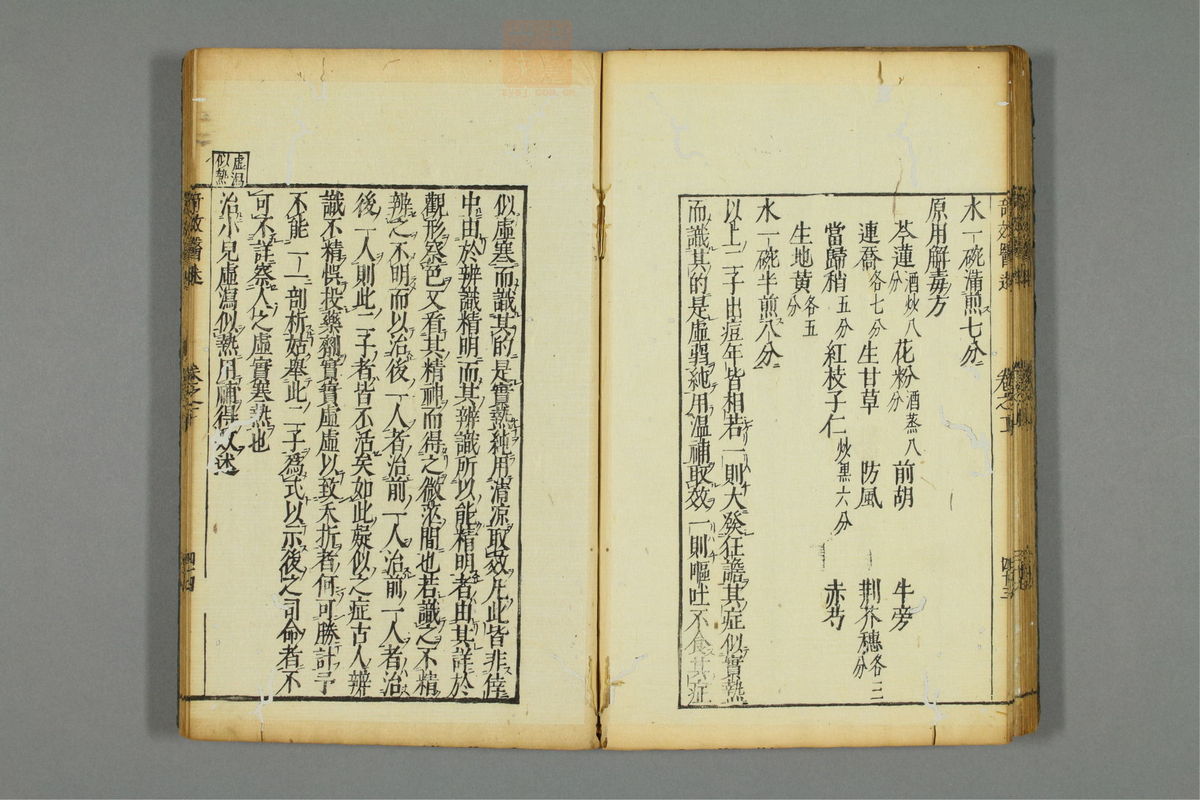 水一碗滿煎七分
原用解毒方
芩蓮酒炒八分 花粉酒蒸八分 前胡 牛旁
連喬各七分 生甘草 防風 荆芥穗各二分
當歸稍五分 紅枝子仁炒黑六分 赤芍
生地黃各五分
水一碗半煎八分
以上二子出痘年皆相若一則大發狂譫其症似實熱
而識其的是虛弱純用溫補取效一則嘔吐不食其症
似虛寒而識其的是實熱純用清凉取效凡此皆非倖
中由於辨識精明而其辨識所以能精明者由其詳於
觀形察色又看其精神而得之微茫間也若識之不精
辨之不明而以治後一人者治前一人治前一人者治
後一人則此二子者皆不活矣如此疑似之症古人辨
識不精悞投藥劑實實虛虛以致夭折者何可勝計予
不能一一剖析姑舉此二子爲式以示後之司命者不
可不詳察人之虛實寒熱也
虛瀉似熱
治小兒虛瀉似熱用補得效述
卷之
四十四